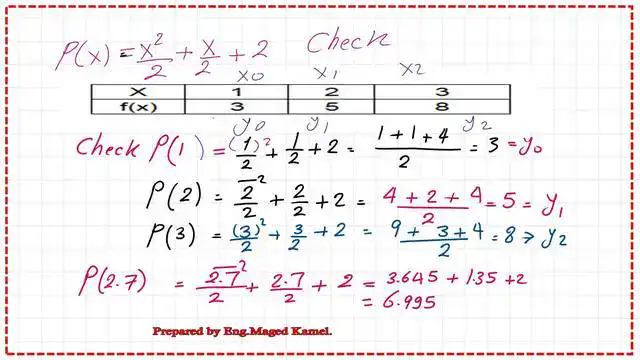 P(x) = x²/2 + x/2 + 2 Check
x0 x1 x2
X 1 2 3
f(x) 3 5 8
y0 y1 y2
Check P(1) = (1)²/2 + 1/2 + 2 = (1+1+4)/2 = 3 = y0
P(2) = 2²/2 + 2/2 + 2 = (4+2+4)/2 = 5 = y1
P(3) = (3)²/2 + 3/2 + 2 = (9+3+4)/2 = 8 ⇒ y2
P(2.7) = 2.7²/2 + 2.7/2 + 2 = 3.645 + 1.35 + 2
= 6.995
Prepared by Eng.Maged Kamel.